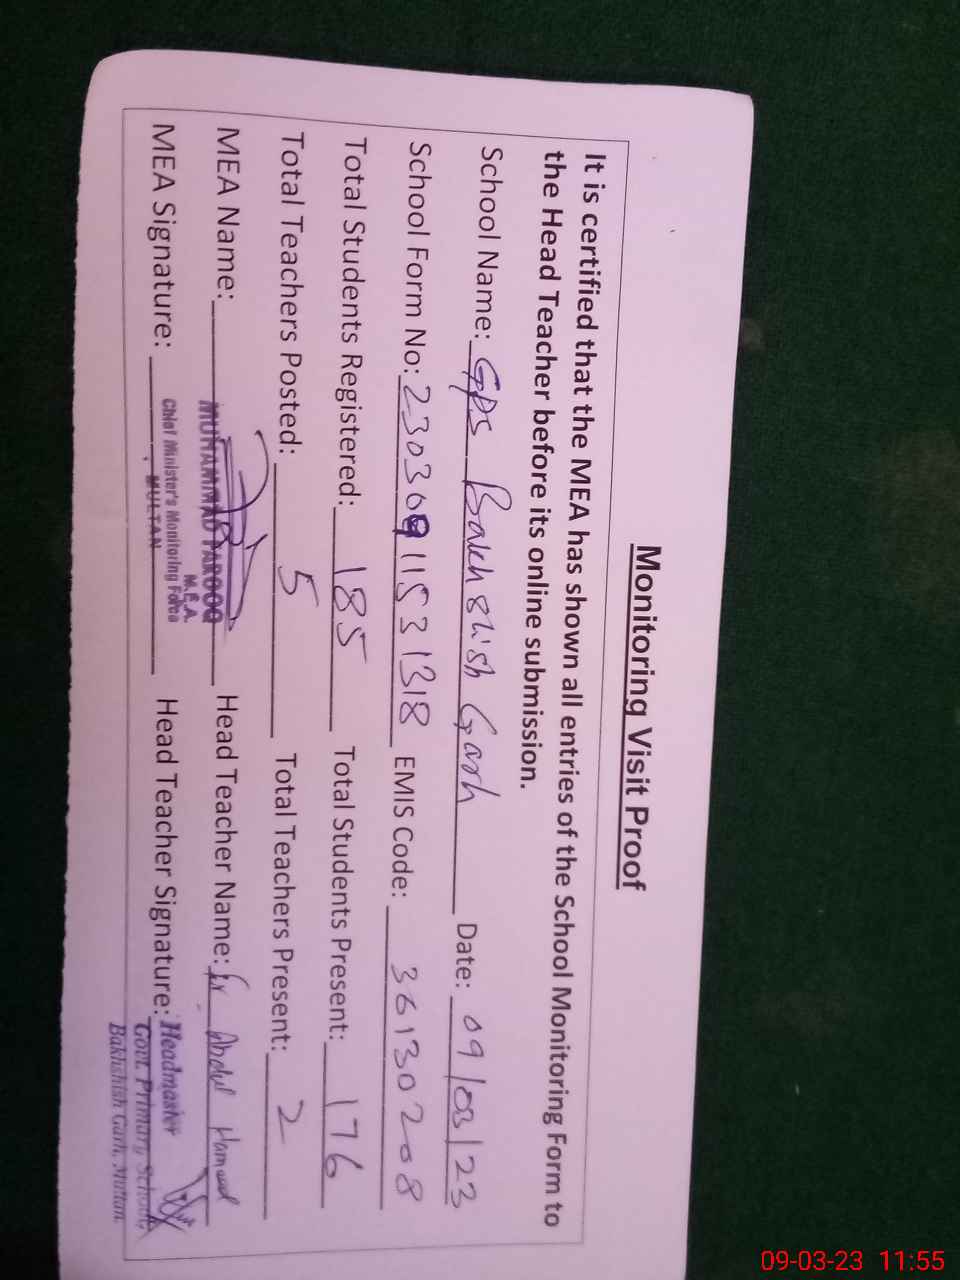 Monitoring Visit Proof
It is certified that the MEA has shown all entries of the School Monitoring Form to
the Head Teacher before its online submission.
School Name: GPS Bakhshish Garh Date: 09/03/23
School Form No: 23030911531318 EMIS Code: 36130208
Total Students Registered: 185 Total Students Present: 176
Total Teachers Posted: 5 Total Teachers Present: 2
MEA Name: Head Teacher Name: Abdul Hameed
MUHAMMAD FAROOQ
M.E.A.
Chief Minister's Monitoring Force
MULTAN
MEA Signature: Head Teacher Signature:
Headmaster
Govt. Primary School,
Bakhshish Garh, Multan.
09-03-23 11:55